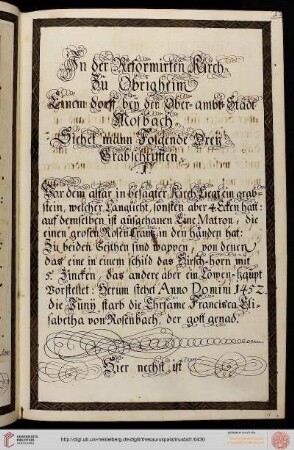 In der Reformirten Kirch
Zu Obrigheim
Einem dorff bey der Ober-ambt Stadt
Mosbach
Siehet mann Folgende Dreÿ
Grabschrifften.
Vor dem altar in besagter Kirch liegt ein grab-
stein, welcher Langlicht, sonsten aber 4 Ecken hatt:
auf demselben ist ausgehauen Eine Matron, die
einen grossen Rosen Crantz in den händen hat:
Zu beiden Seithen sind wappen, von denen
das eine in einem schild das Hirsch-horn mit
5. Zincken, das andere aber ein Löwen-haupt
Vorstellet: Herum stehet Anno Domini 1452.
die Junÿ starb die Ehrsame Francisca Eli-
sabetha von Rosenbach der gott genad.
Hier nechst ist
UNIVERSITÄTS-
BIBLIOTHEK
HEIDELBERG